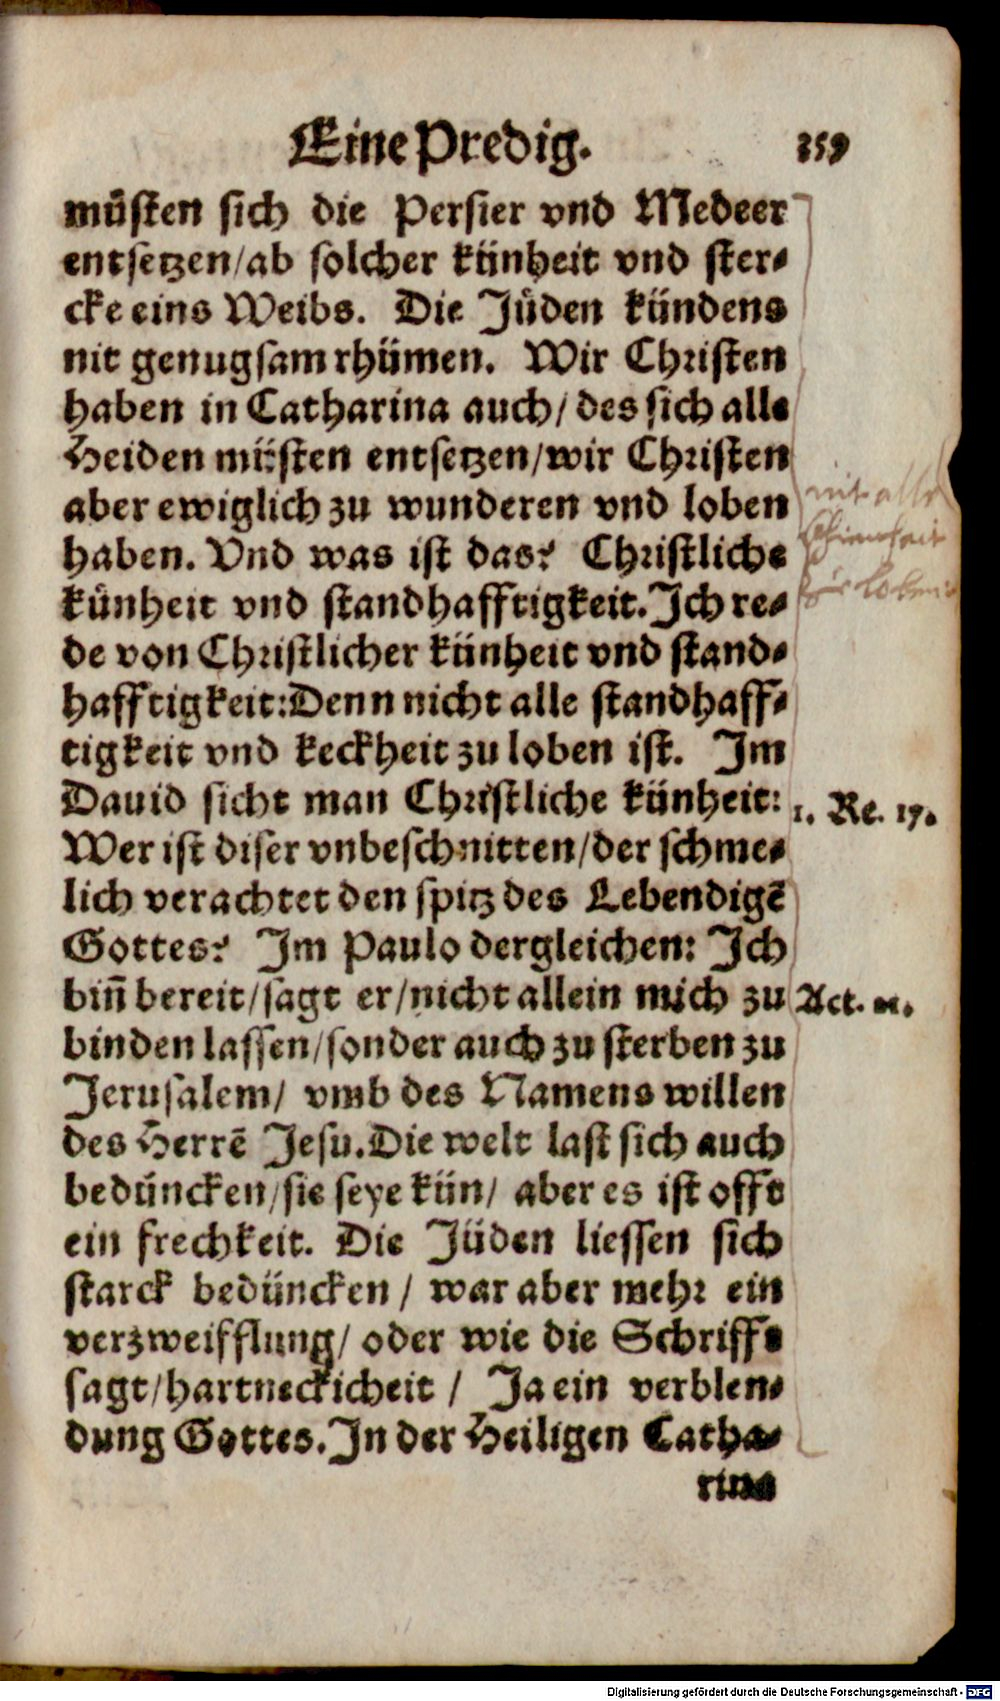 Eine Predig. 259
müsten sich die Persier vnd Medeer
entsetzen/ab solcher künheit vnd ster-
cke eins Weibs. Die Jüden kündens
nit genugsam rhümen. Wir Christen
haben in Catharina auch/des sich alle
Heiden müsten entsetzen/wir Christen
aber ewiglich zu wunderen vnd loben
haben. Vnd was ist das? Christliche
künheit vnd standhafftigkeit. Ich re-
de von Christlicher künheit vnd stand-
hafftigkeit: Denn nicht alle standhaff-
tigkeit vnd keckheit zu loben ist. Im
Dauid sicht man Christliche künheit:
1. Re. 17.
Wer ist diser vnbeschnitten/der schme-
lich verachtet den spitz des Lebendigē
Gottes? Im Paulo dergleichen: Ich
biñ bereit/sagt er/nicht allein mich zu
Act. 21.
binden lassen/sonder auch zu sterben zu
Jerusalem/ vmb des Namens willen
des Herrē Jesu. Die welt last sich auch
bedüncken/sie seye kün/ aber es ist offt
ein frechkeit. Die Jüden liessen sich
starck bedüncken/ war aber mehr ein
verzweifflung/ oder wie die Schrifft
sagt/hartneckicheit/ Ja ein verblen-
dung Gottes. In der Heiligen Catha-
rina
nit alle
Digitalisierung gefördert durch die Deutsche Forschungsgemeinschaft - DFG